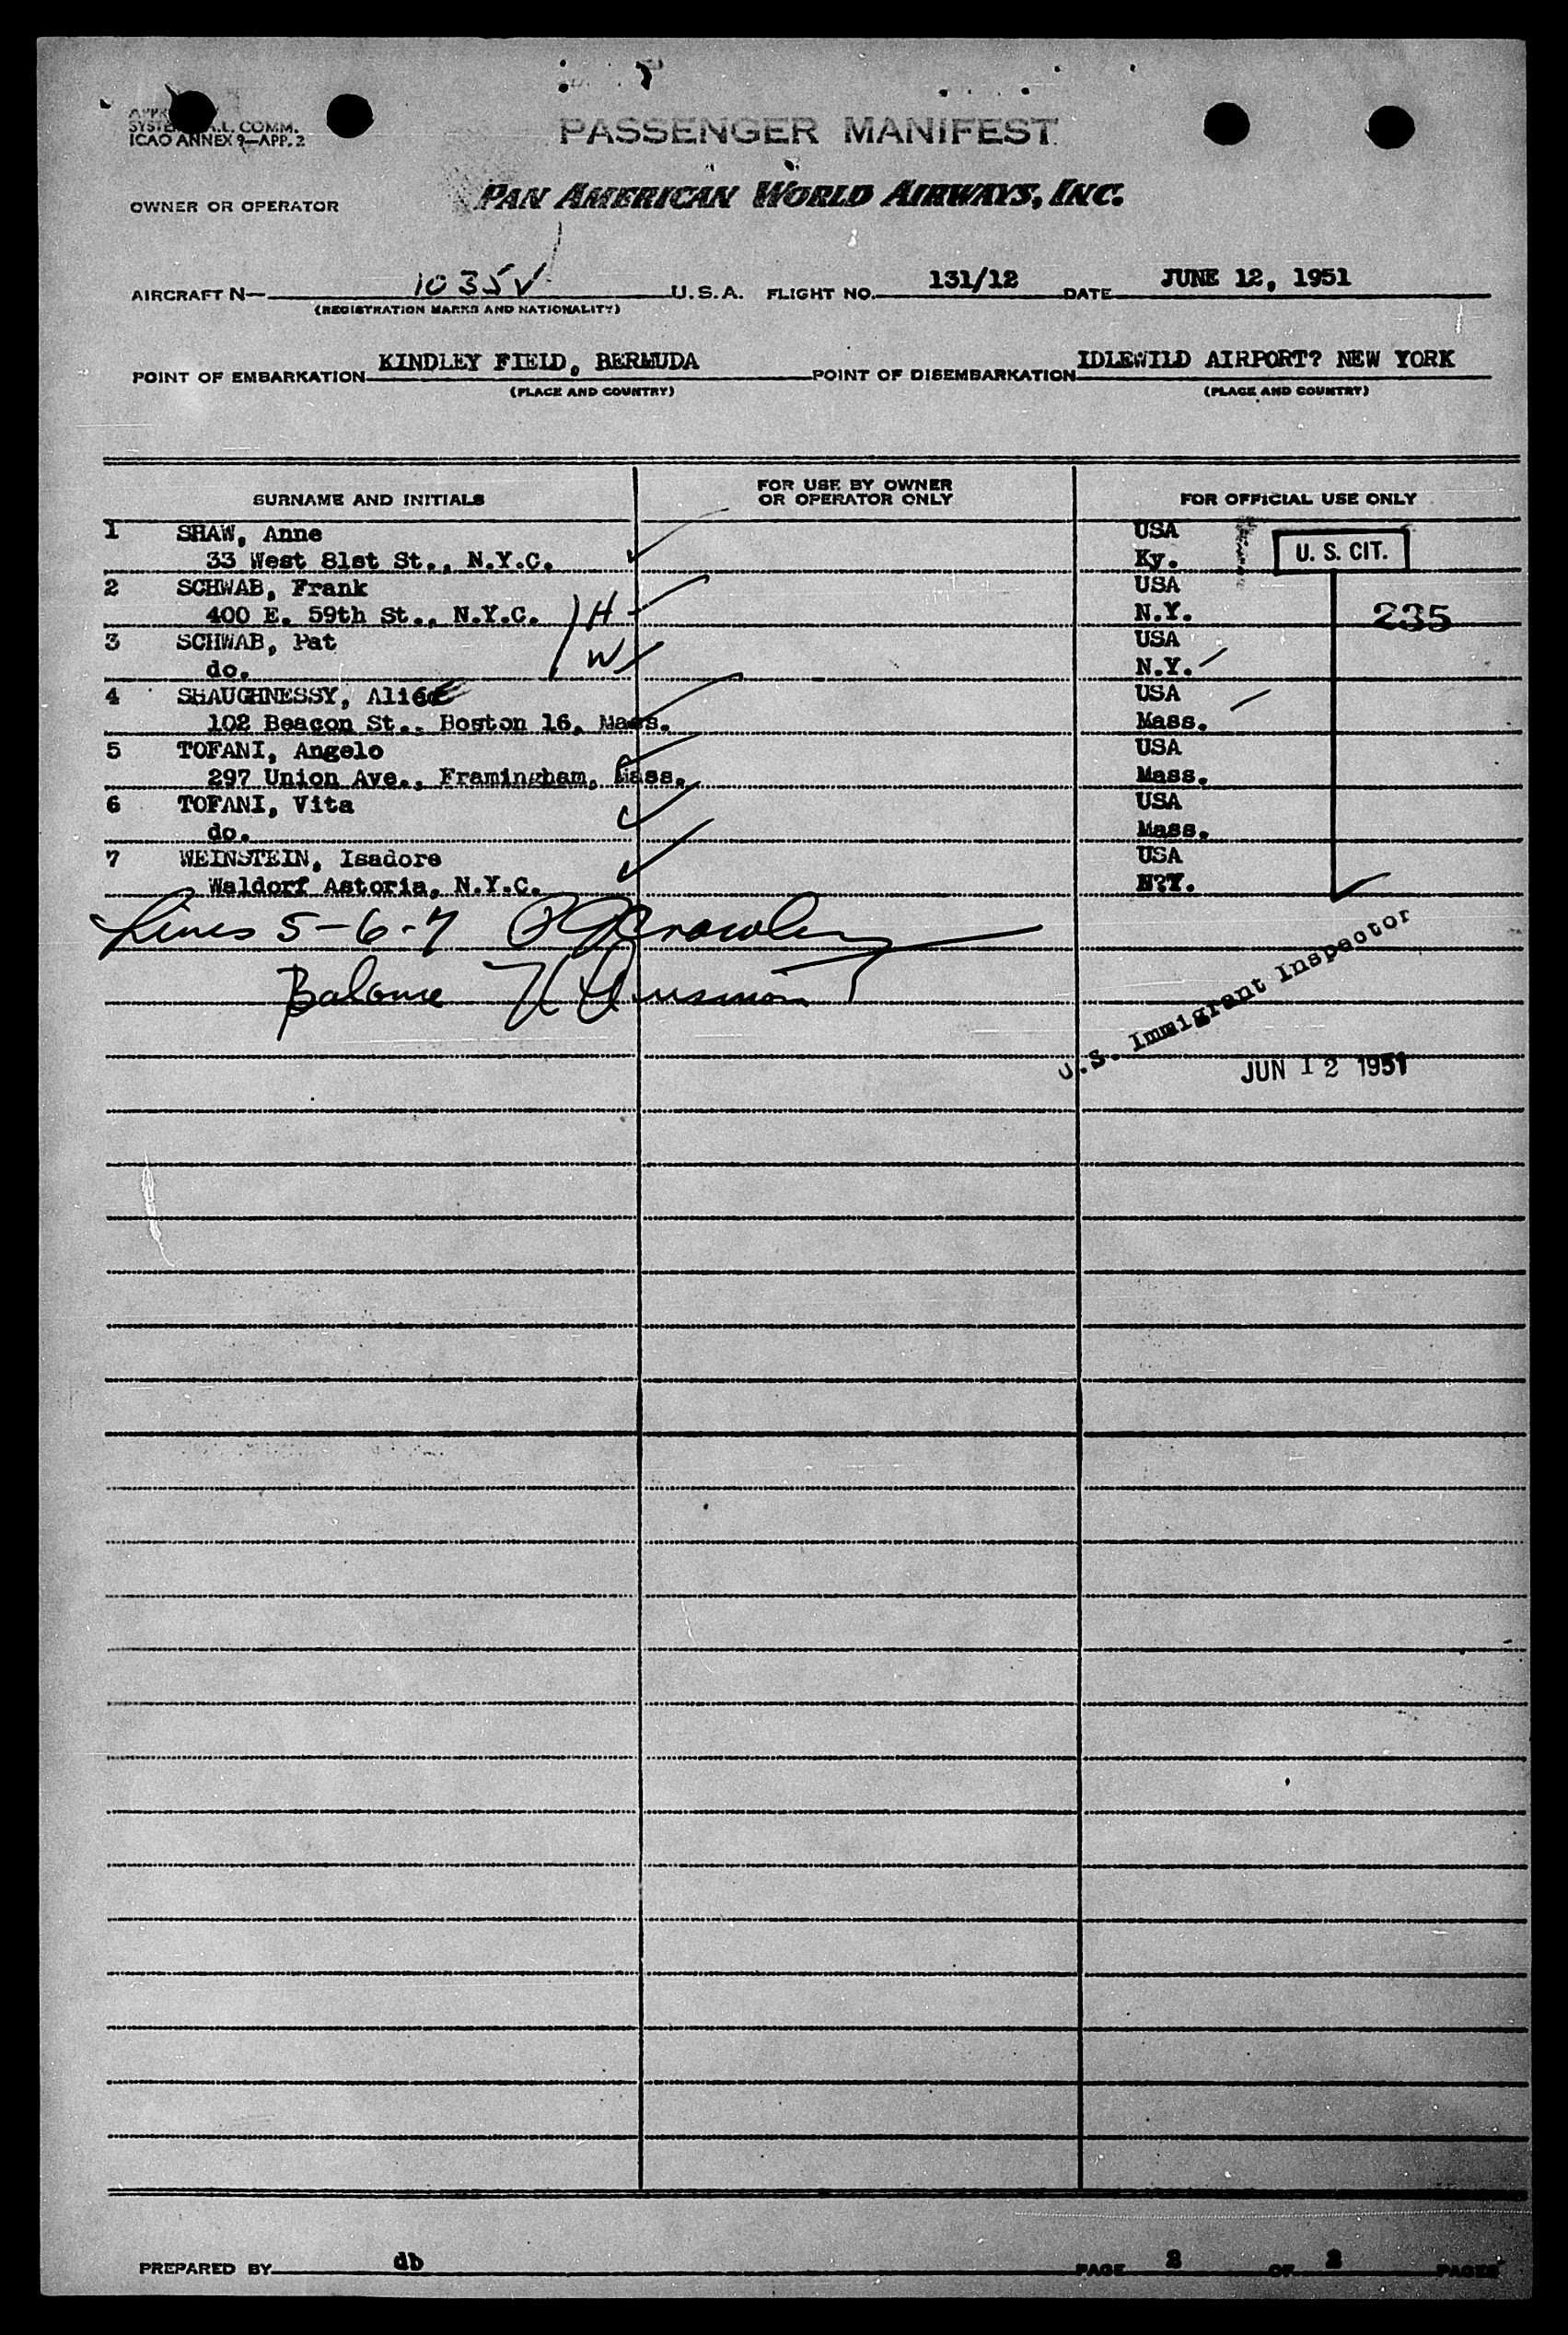 SYSTE A.L. COMM.
ICAO ANNEX 9—APP. 2
PASSENGER MANIFEST
OWNER OR OPERATOR
PAN AMERICAN WORLD AIRWAYS, INC.
AIRCRAFT N— 1035V U.S.A. FLIGHT NO. 131/12 DATE JUNE 12, 1951
(REGISTRATION MARKS AND NATIONALITY)
POINT OF EMBARKATION KINDLEY FIELD, BERMUDA POINT OF DISEMBARKATION IDLEWILD AIRPORT? NEW YORK
(PLACE AND COUNTRY) (PLACE AND COUNTRY)
SURNAME AND INITIALS FOR USE BY OWNER OR OPERATOR ONLY FOR OFFICIAL USE ONLY
1 SHAW, Anne USA
33 West 81st St., N.Y.C. Ky. U. S. CIT.
2 SCHWAB, Frank USA
400 E. 59th St., N.Y.C. H N.Y. 235
3 SCHWAB, Pat USA
do. W N.Y.
4 SHAUGHNESSY, Alice USA
102 Beacon St., Boston 16, Mass. Mass.
5 TOFANI, Angelo USA
297 Union Ave., Framingham, Mass. Mass.
6 TOFANI, Vita USA
do. Mass.
7 WEINSTEIN, Isadore USA
Waldorf Astoria, N.Y.C. N?Y.
Lines 5-6-7
Balance
U.S. Immigrant Inspector
JUN 12 1951
PREPARED BY db PAGE 2 OF 2 PAGES